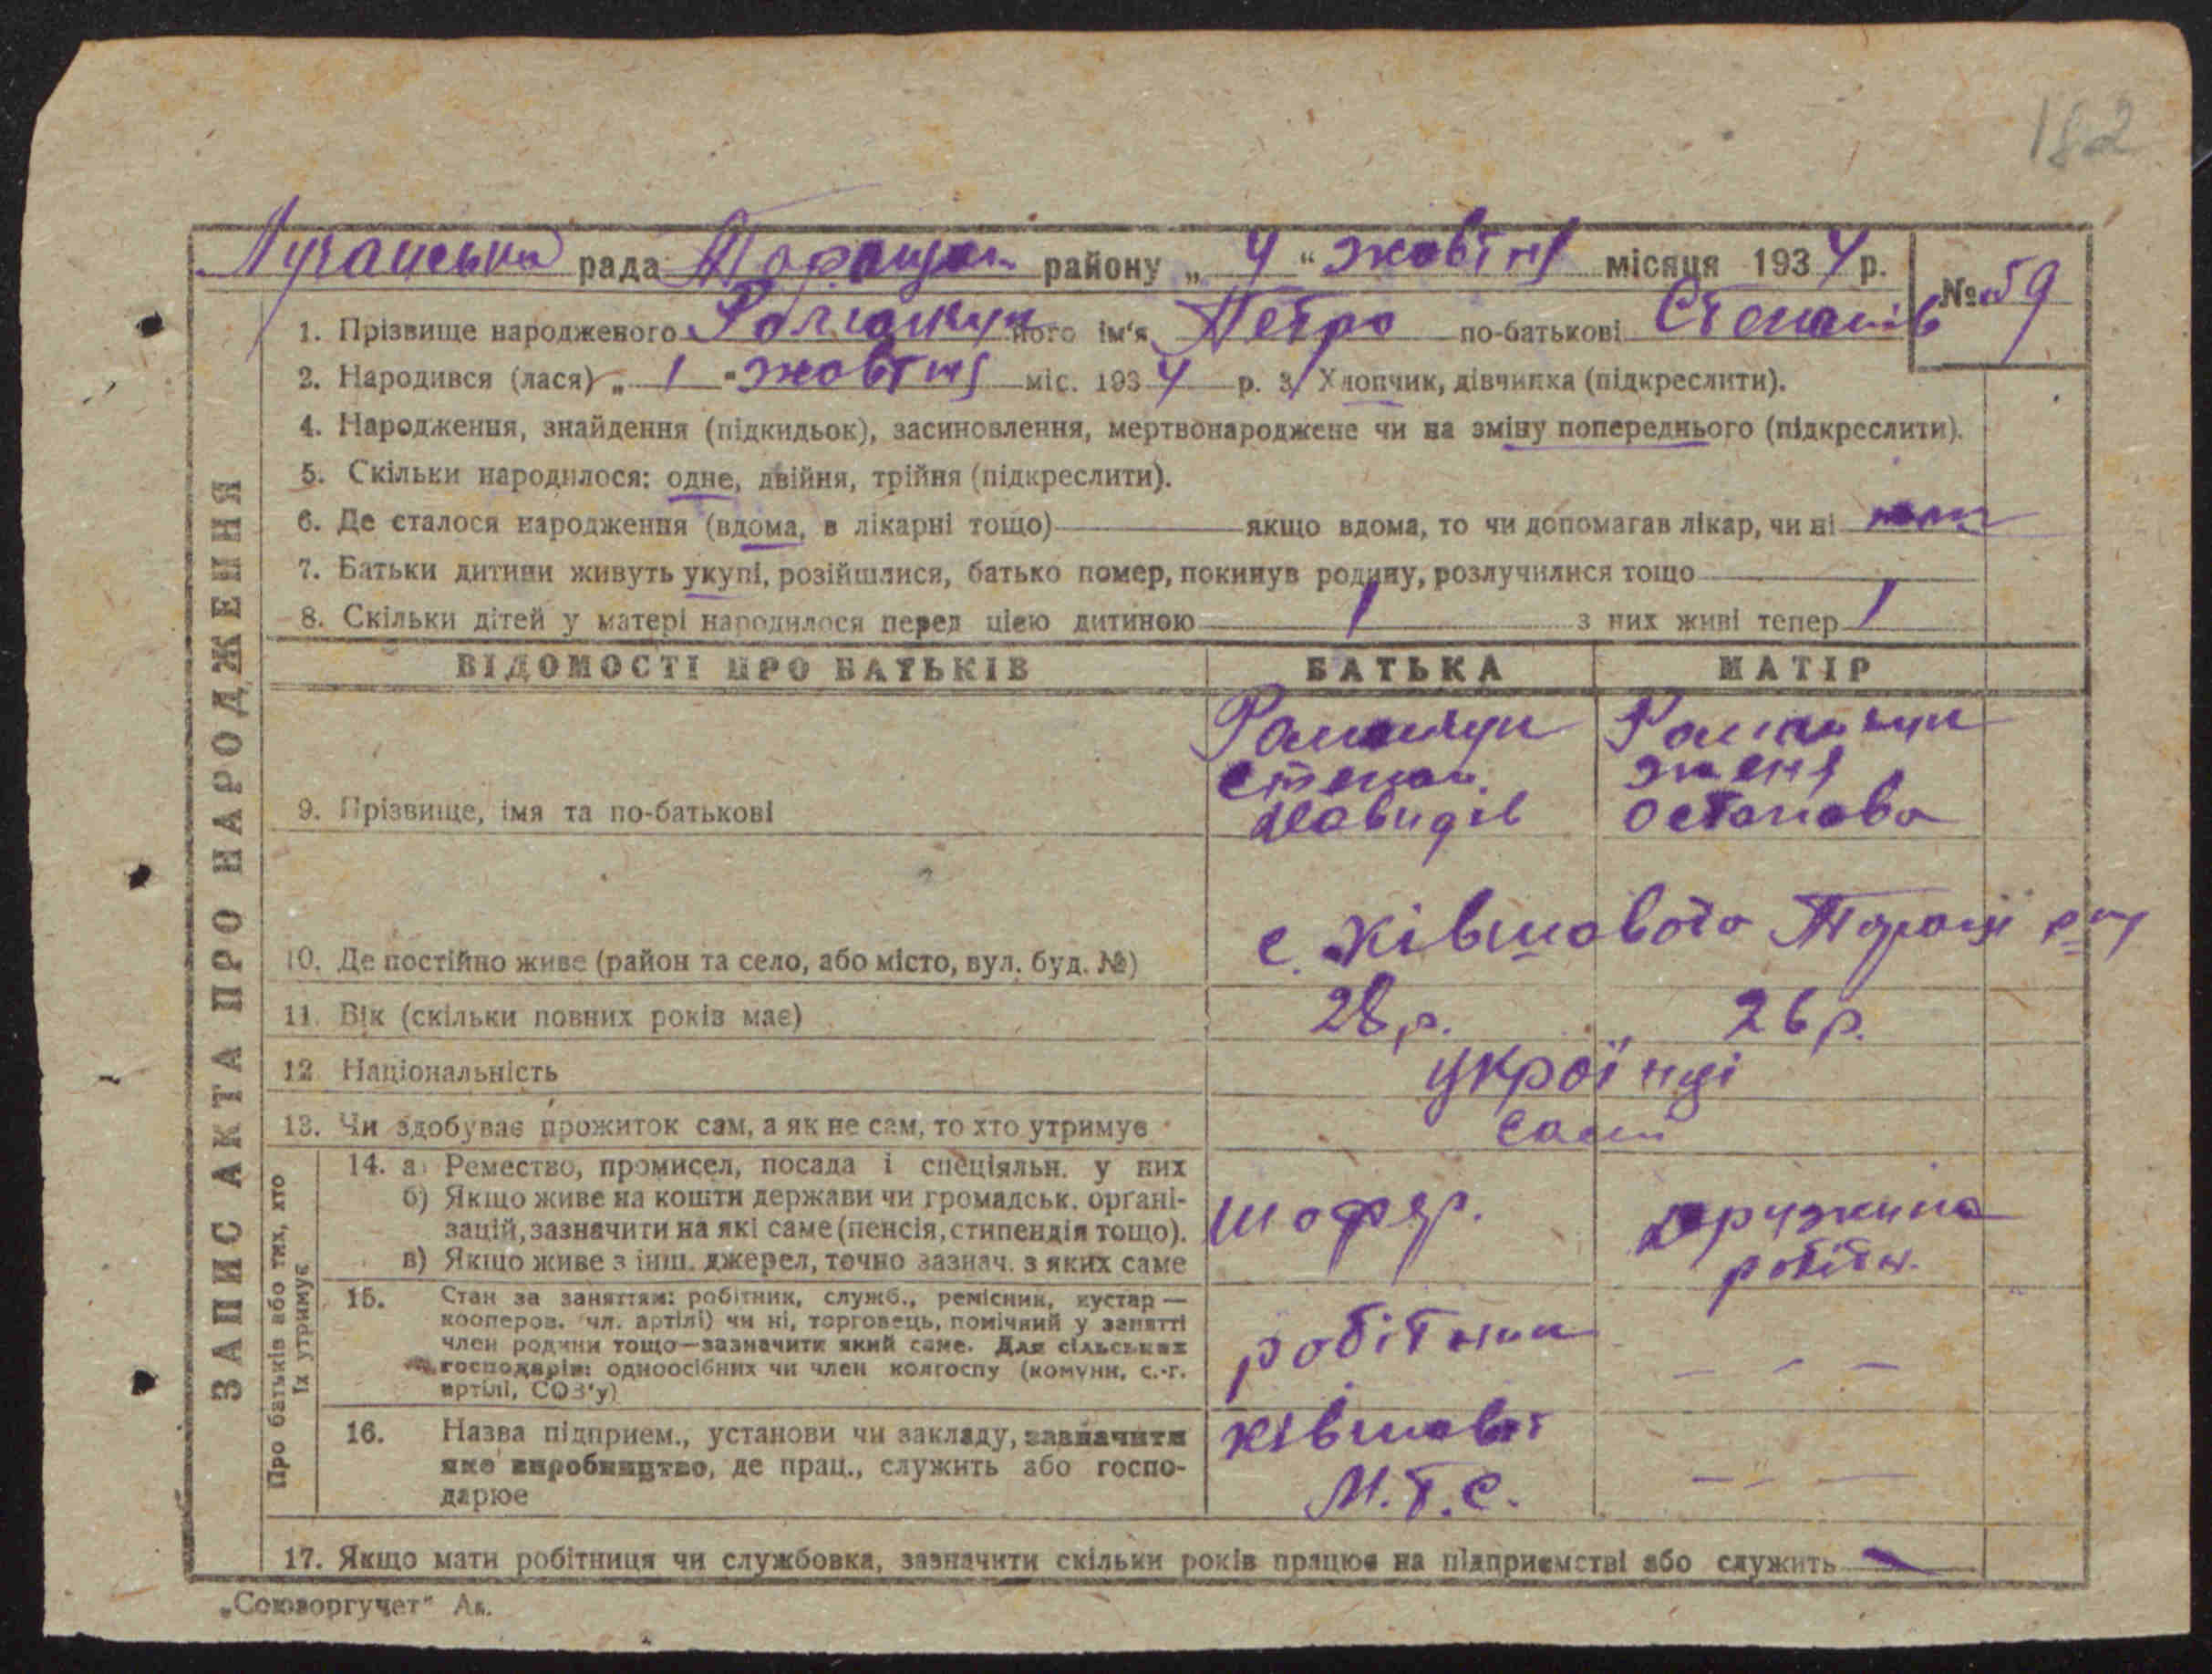 182
Лучанська рада Таращан. району „ 4 “ жовтня місяця 1934 р. № 59
1. Прізвище народженого Ромашкун його ім'я Петро по-батькові Степанів
2. Народився (лася) „ 1 “ жовтня міс. 1934 р. 3/ Хлопчик, дівчинка (підкреслити).
4. Народження, знайдення (підкидьок), засиновлення, мертвонароджене чи на зміну попереднього (підкреслити).
5. Скільки народилося: одне, двійня, трійня (підкреслити).
6. Де сталося народження (вдома, в лікарні тощо) якщо вдома, то чи допомагав лікар, чи ні
7. Батьки дитини живуть укупі, розійшлися, батько помер, покинув родину, розлучилися тощо
8. Скільки дітей у матері народилося перед цією дитиною 1 з них живі тепер 1
ВІДОМОСТІ ПРО БАТЬКІВ БАТЬКА МАТІР
9. Прізвище, імя та по-батькові
Ромашкун
Степан
Давидів
Ромашкун
Женя
Остапова
10. Де постійно живе (район та село, або місто, вул. буд. №) с. Ківшовата Таращ р-ну
11. Вік (скільки повних років має) 28 р. 26 р.
12. Національність українці
13. Чи здобуває прожиток сам, а як не сам, то хто утримує сами
14. а) Ремество, промисел, посада і спеціяльн. у них
б) Якщо живе на кошти держави чи громадськ. органі-
зацій, зазначити на які саме (пенсія, стипендія тощо).
в) Якщо живе з інш. джерел, точно зазнач. з яких саме
шофер.
дружина
робітн.
15. Стан за заняттям: робітник, служб., ремісник, кустар —
кооперов. чл. артілі) чи ні, торговець, помічний у занятті
член родини тощо—зазначити який саме. Для сільських
господарів: одноосібних чи член колгоспу (комуни, с.-г.
артілі, СОЗ'у)
робітник
— — —
16. Назва підприєм., установи чи закладу, зазначити
яке виробництво, де прац., служить або госпо-
дарює
Ківшоват
М.Т.С.
— — —
17. Якщо мати робітниця чи службовка, зазначити скільки років працює на підприємстві або служить —
ЗАПИС АКТА ПРО НАРОДЖЕННЯ
Про батьків або тих, хто
їх утримує
„Союзоргучет“ Ак.